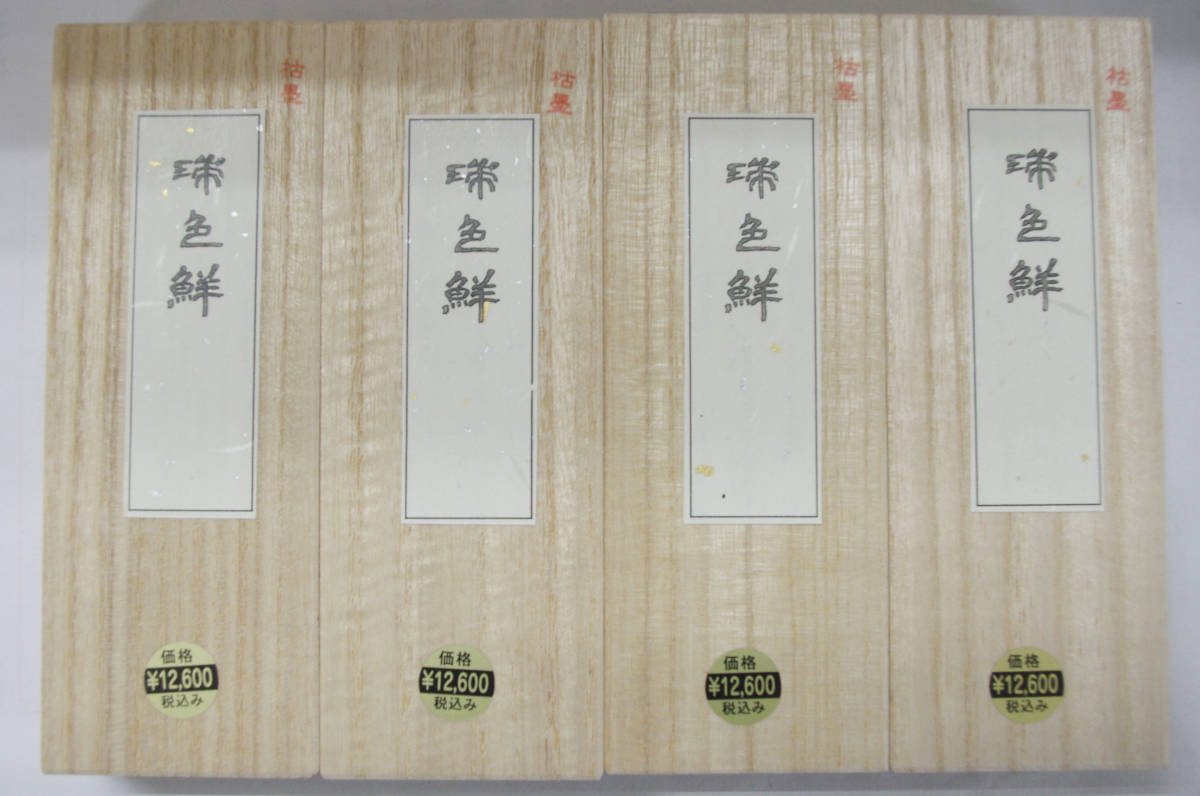 祜墨
瑞色鮮
価格
¥12,600
税込み
祜墨
瑞色鮮
価格
¥12,600
税込み
祜墨
瑞色鮮
価格
¥12,600
税込み
祜墨
瑞色鮮
価格
¥12,600
税込み